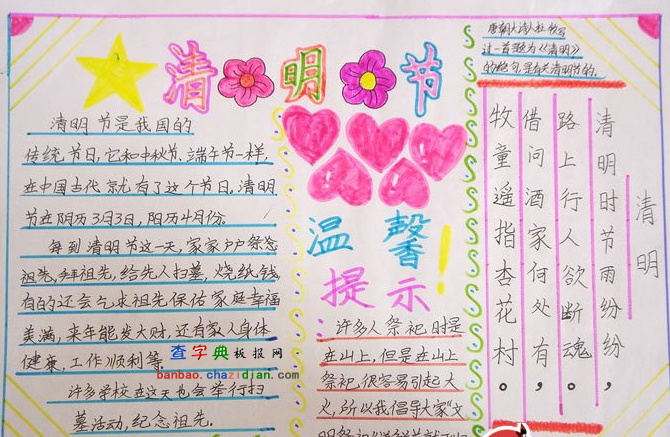 清明节
清明节是我国的
传统节日,它和中秋节、端午节一样,
在中国古代就有了这个节日,清明
节在阴历3月3日,阳历4月份。
每到清明节这一天,家家户户祭念
祖先,拜祖先,给先人扫墓,烧纸钱,
有的还会乞求祖先保佑家庭幸福
美满,来年能发大财,还有家人身体
健康,工作顺利等。
许多学校在这天也会举行扫
墓活动,纪念祖先。
查字典板报网
banbao.chazidian.com
温馨
提示!
许多人祭祀时是
在山上,但是在山上
祭祀,很容易引起大
火,所以我倡导大家“文
唐朝大诗人杜牧写
过一首题为《清明》
的绝句,是有关清明节的。
清明
清明时节雨纷纷,
路上行人欲断魂。
借问酒家何处有,
牧童遥指杏花村。